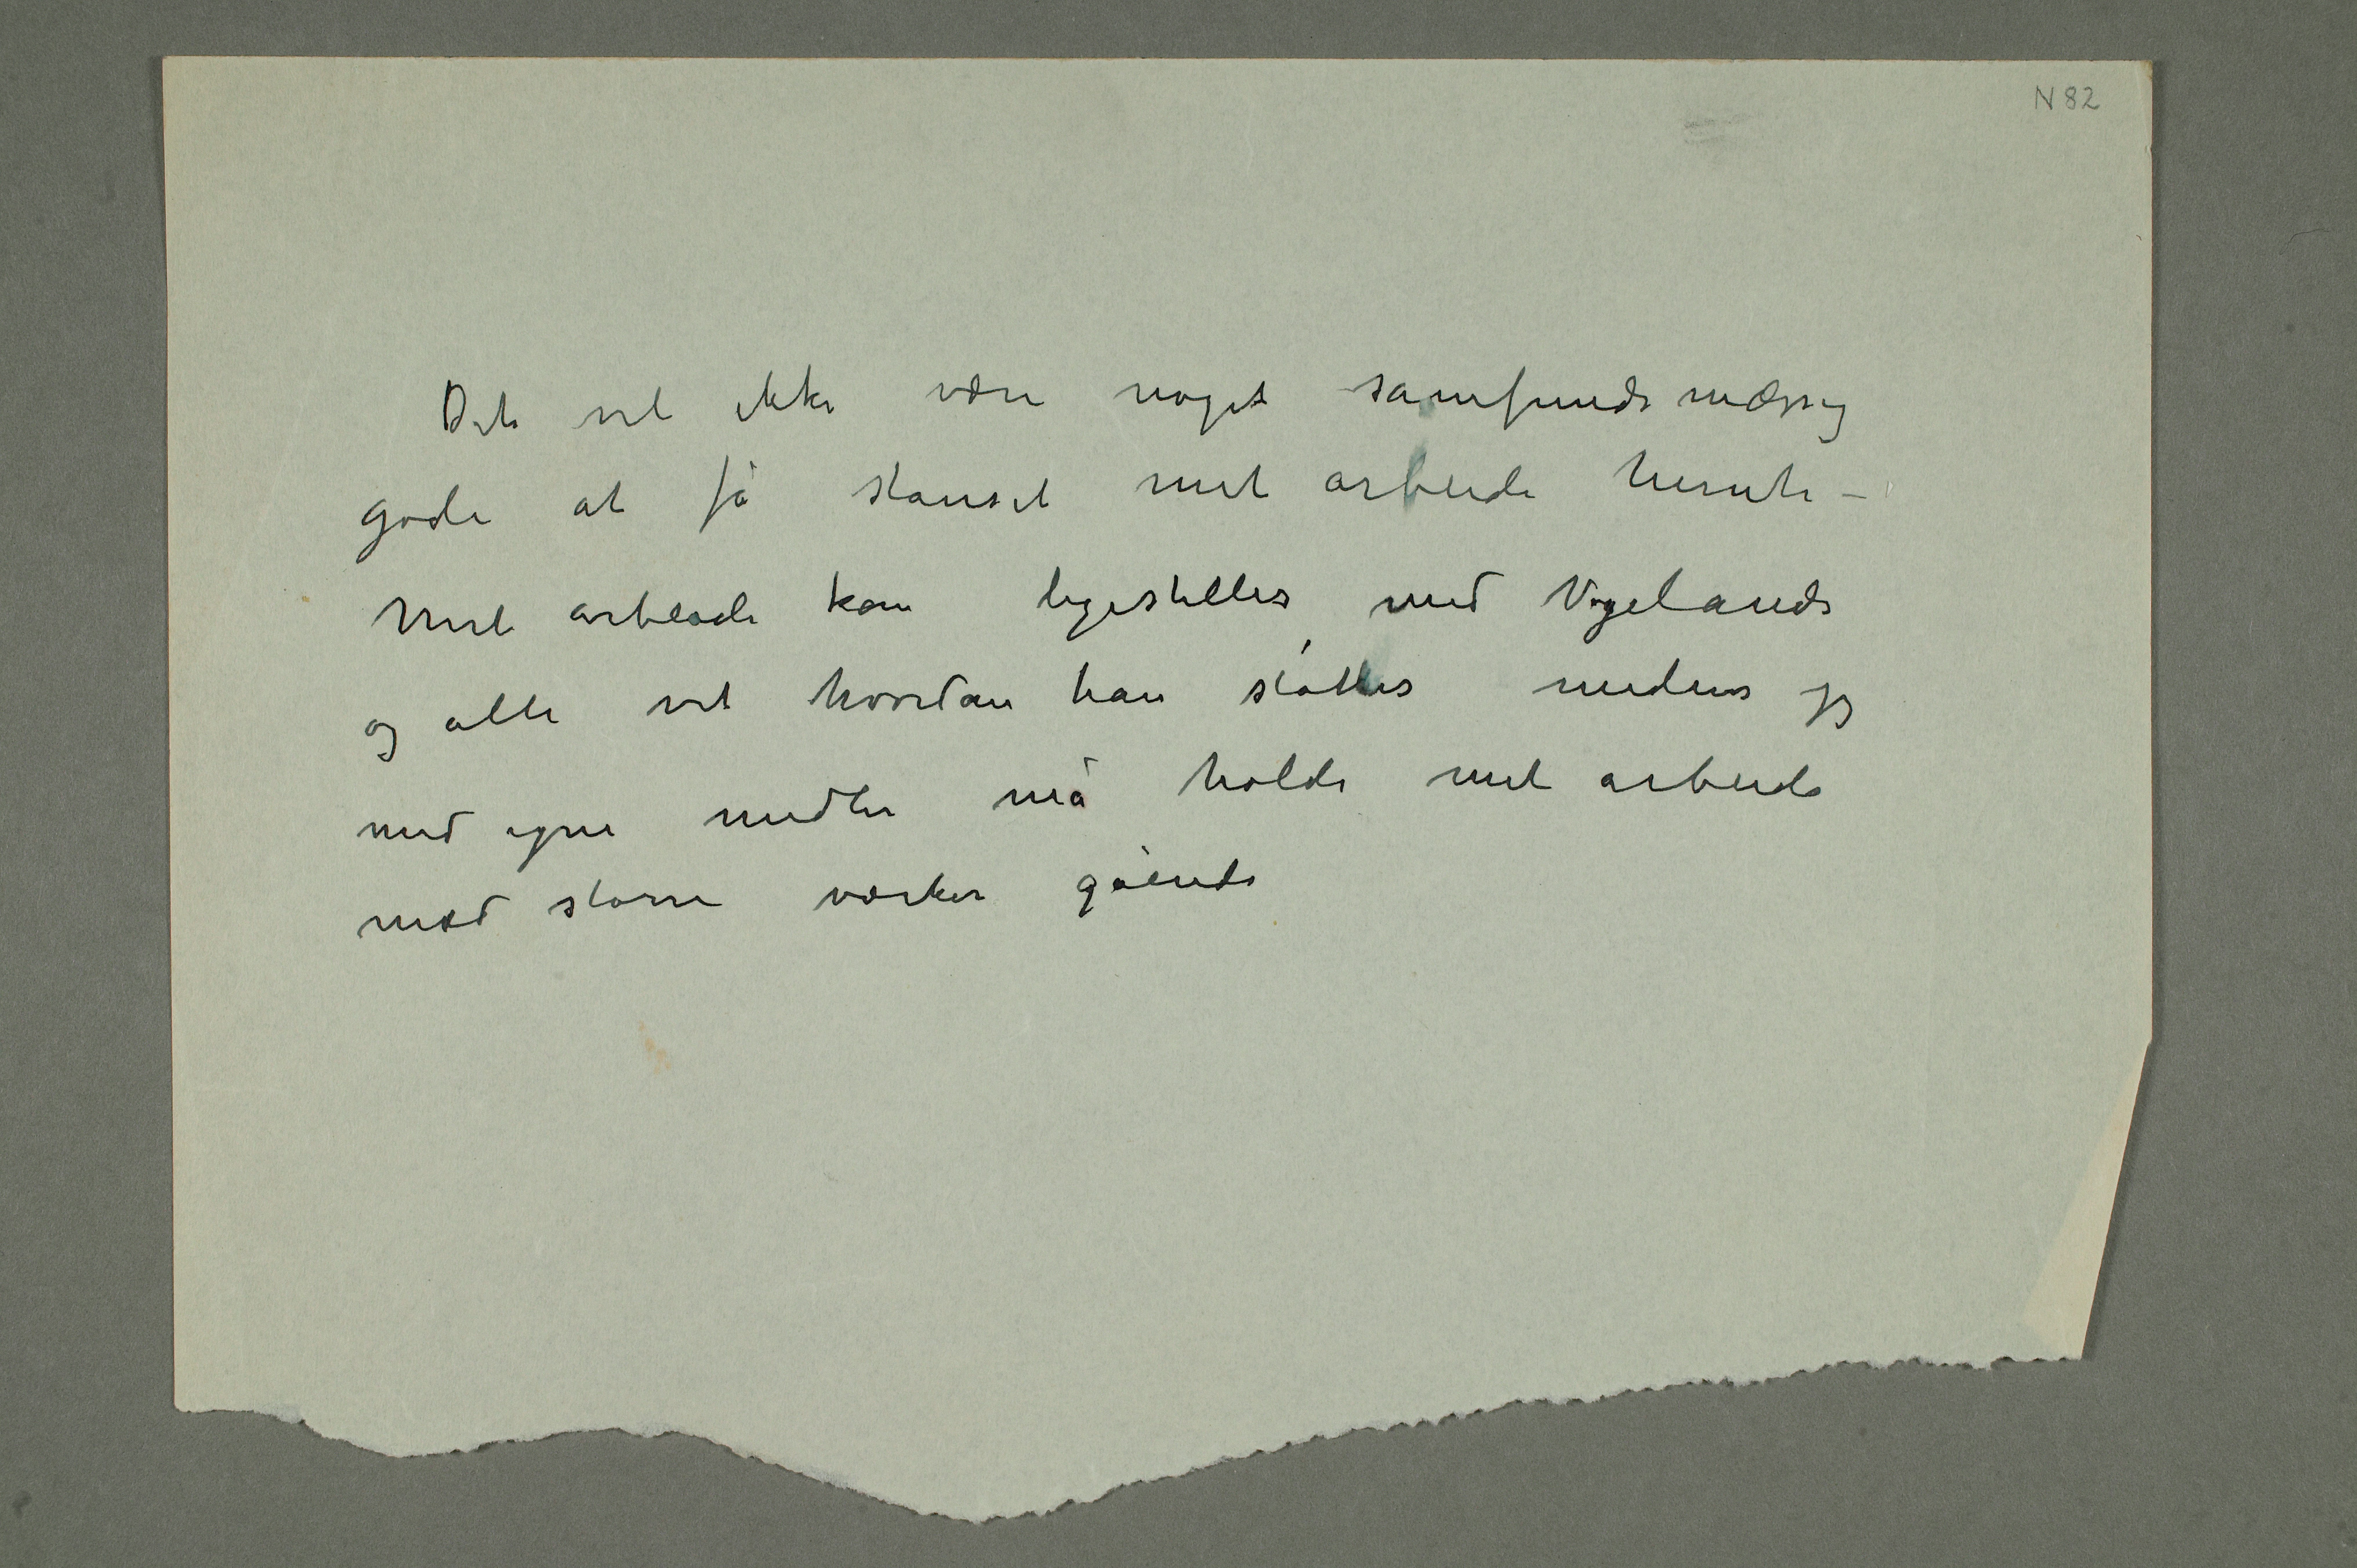 N 82
Dete vil ikke være noget samfundsmæssig
gode at få stanset mit arbeide herute –
Mit arbeide kan ligestilles med Vigelands
og alle vet hvordan han støttes medens jeg
med egne midler må holde mit arbeide
med større værker gående